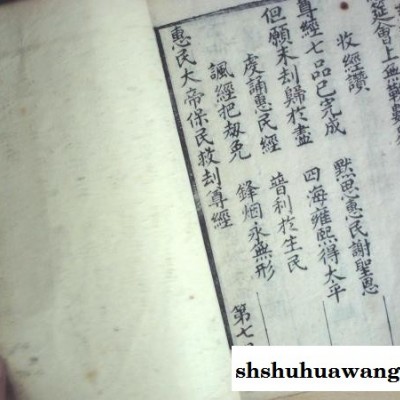 筵會上無
收經讚
尊經七品已完成 默思惠民謝聖恩
但願末刦歸於盡 四海雍熙得太平
虔誦惠民經 普利於生民
諷經把刼免 鋒烟永無形
惠民大帝保民救刦尊經 第七
shshuhuawang